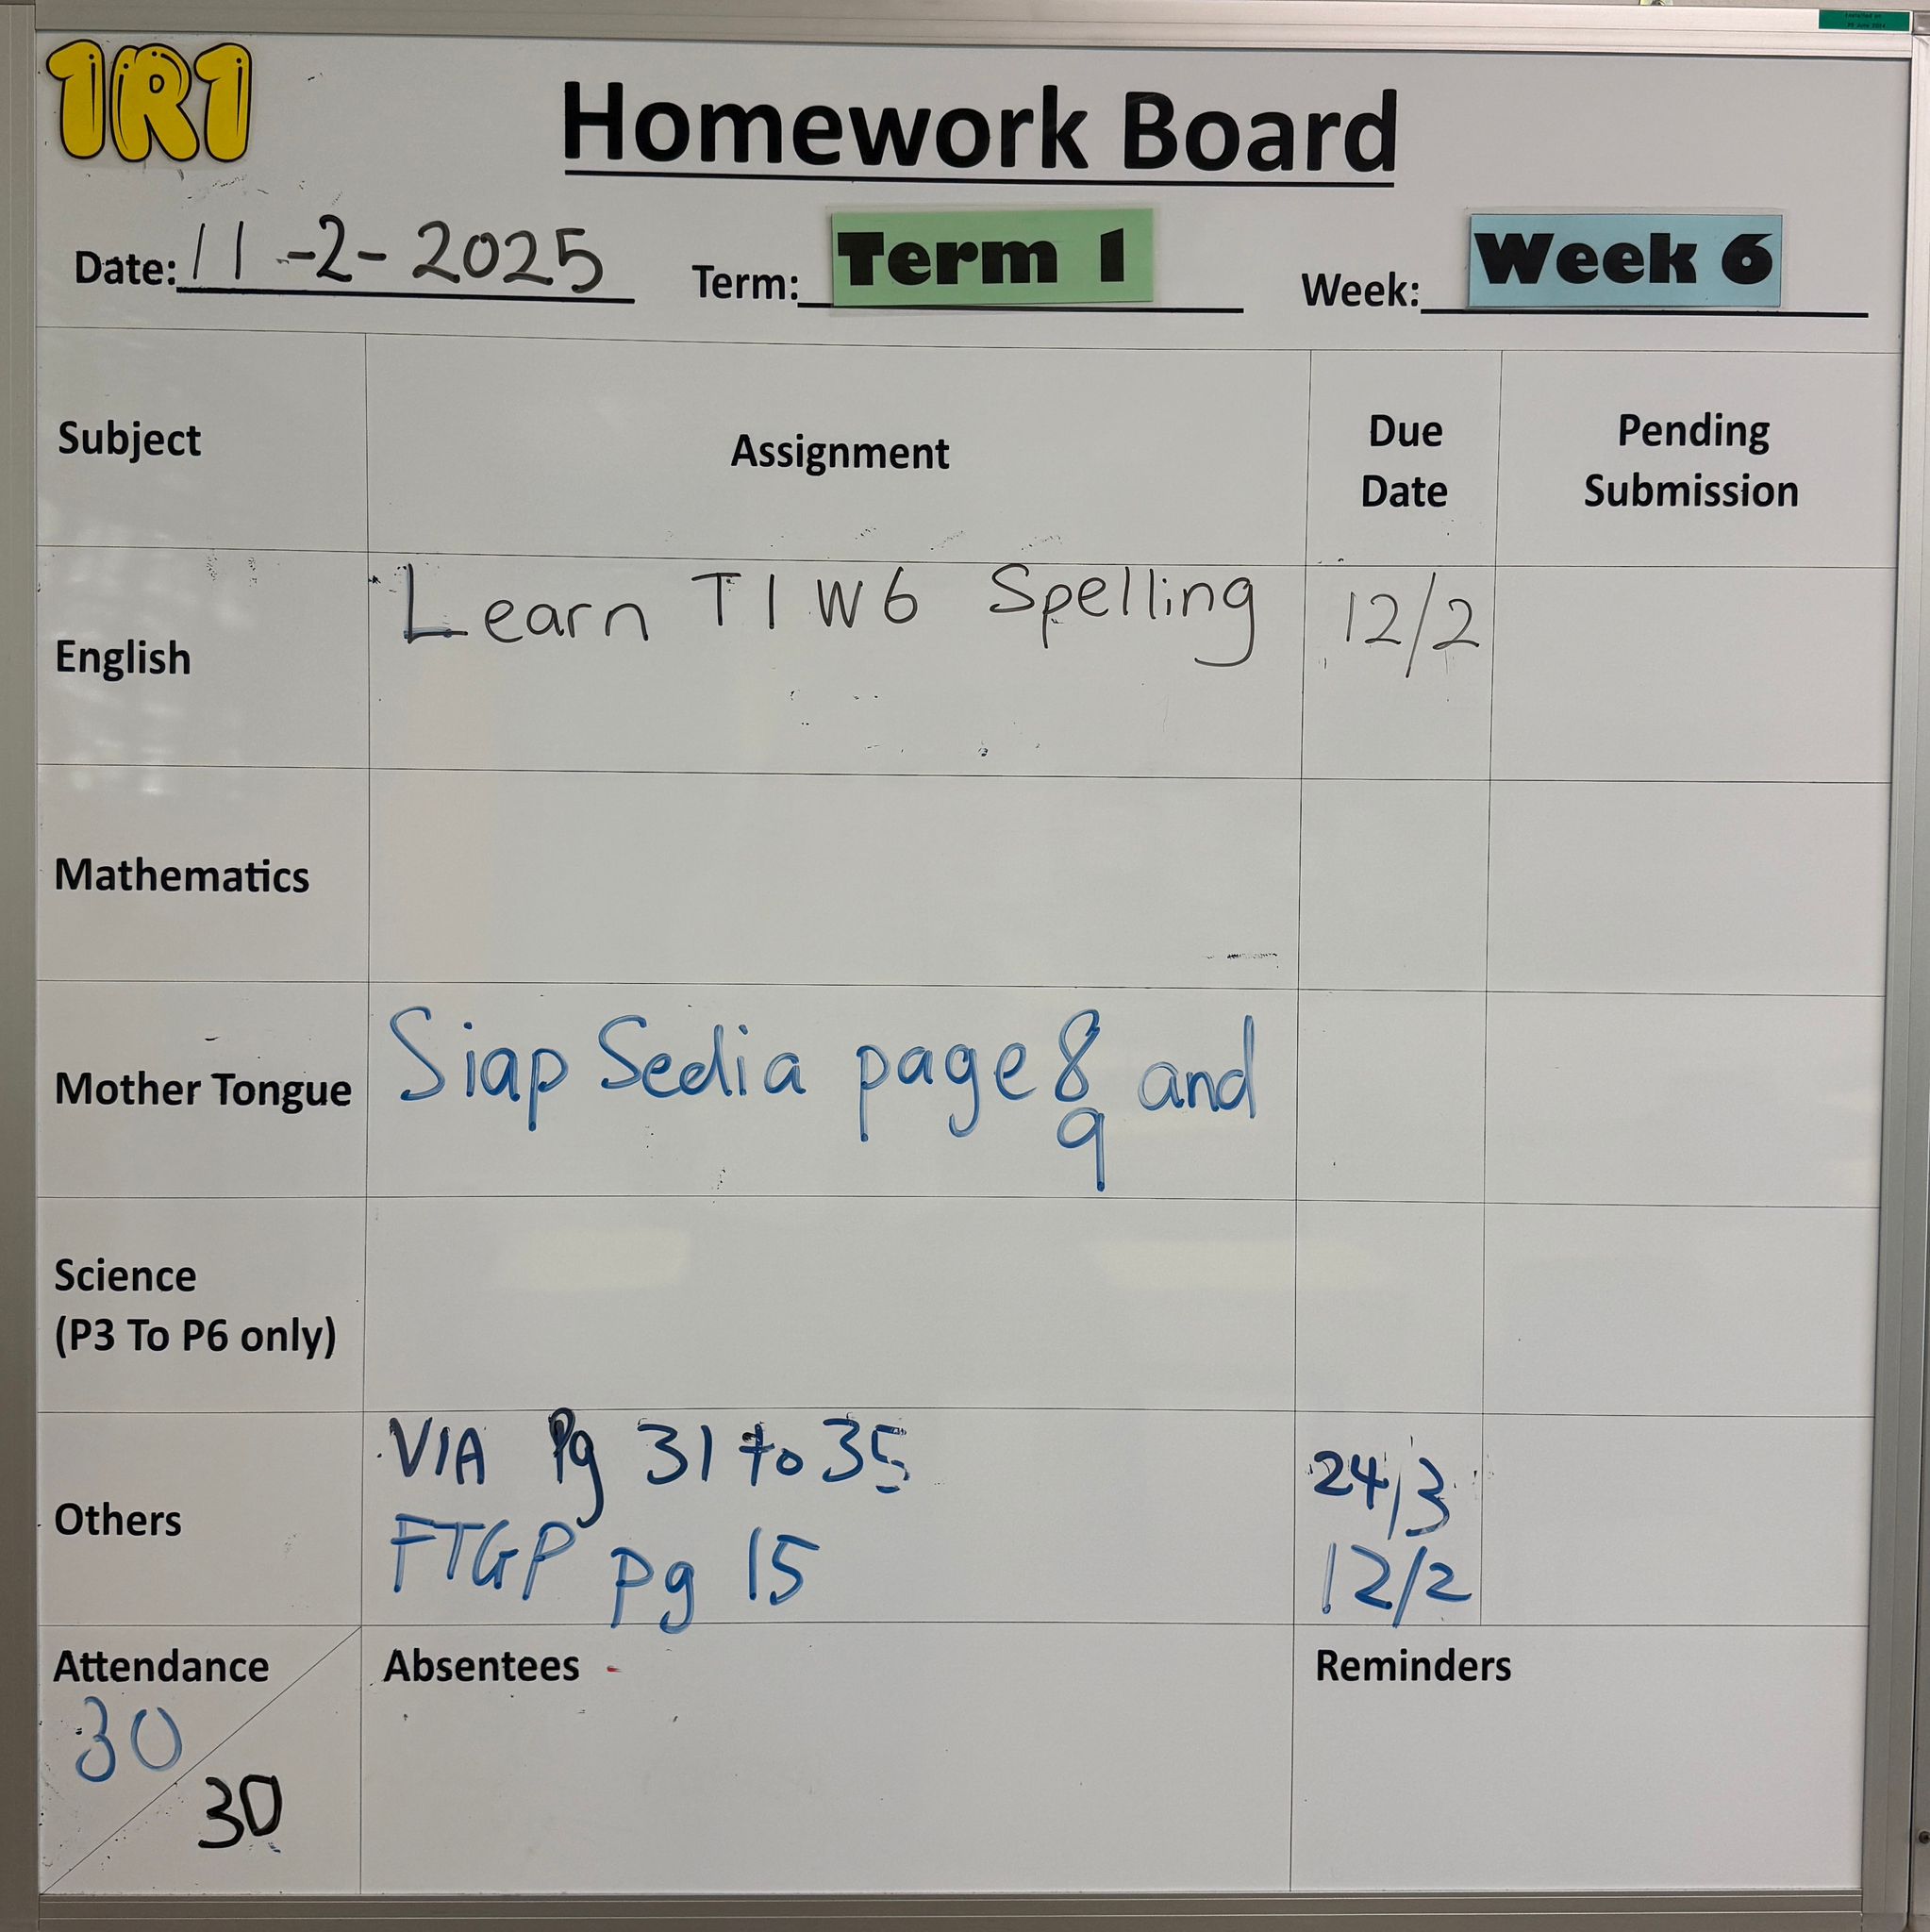 1R1
Homework Board
Date: 11-2-2025 Term: Term 1 Week: Week 6
Subject Assignment Due Date Pending Submission
English Learn T1W6 Spelling 12/2
Mathematics
Mother Tongue Siap Sedia page 8 and
9
Science
(P3 To P6 only)
Others
VIA Pg 31 to 35 24/3
FTGP pg 15 12/2
Attendance Absentees Reminders
30
30